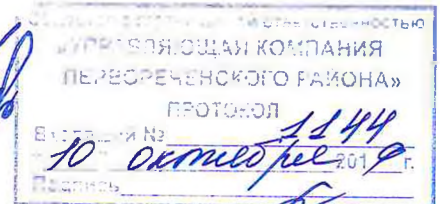 ОБЩЕСТВО С ОГРАНИЧЕННОЙ ОТВЕТСТВЕННОСТЬЮ
«УПРАВЛЯЮЩАЯ КОМПАНИЯ
ПЕРВОРЕЧЕНСКОГО РАЙОНА»
ПРОТОКОЛ
Входящий № 1144
10 октября 2019 г.
Подпись